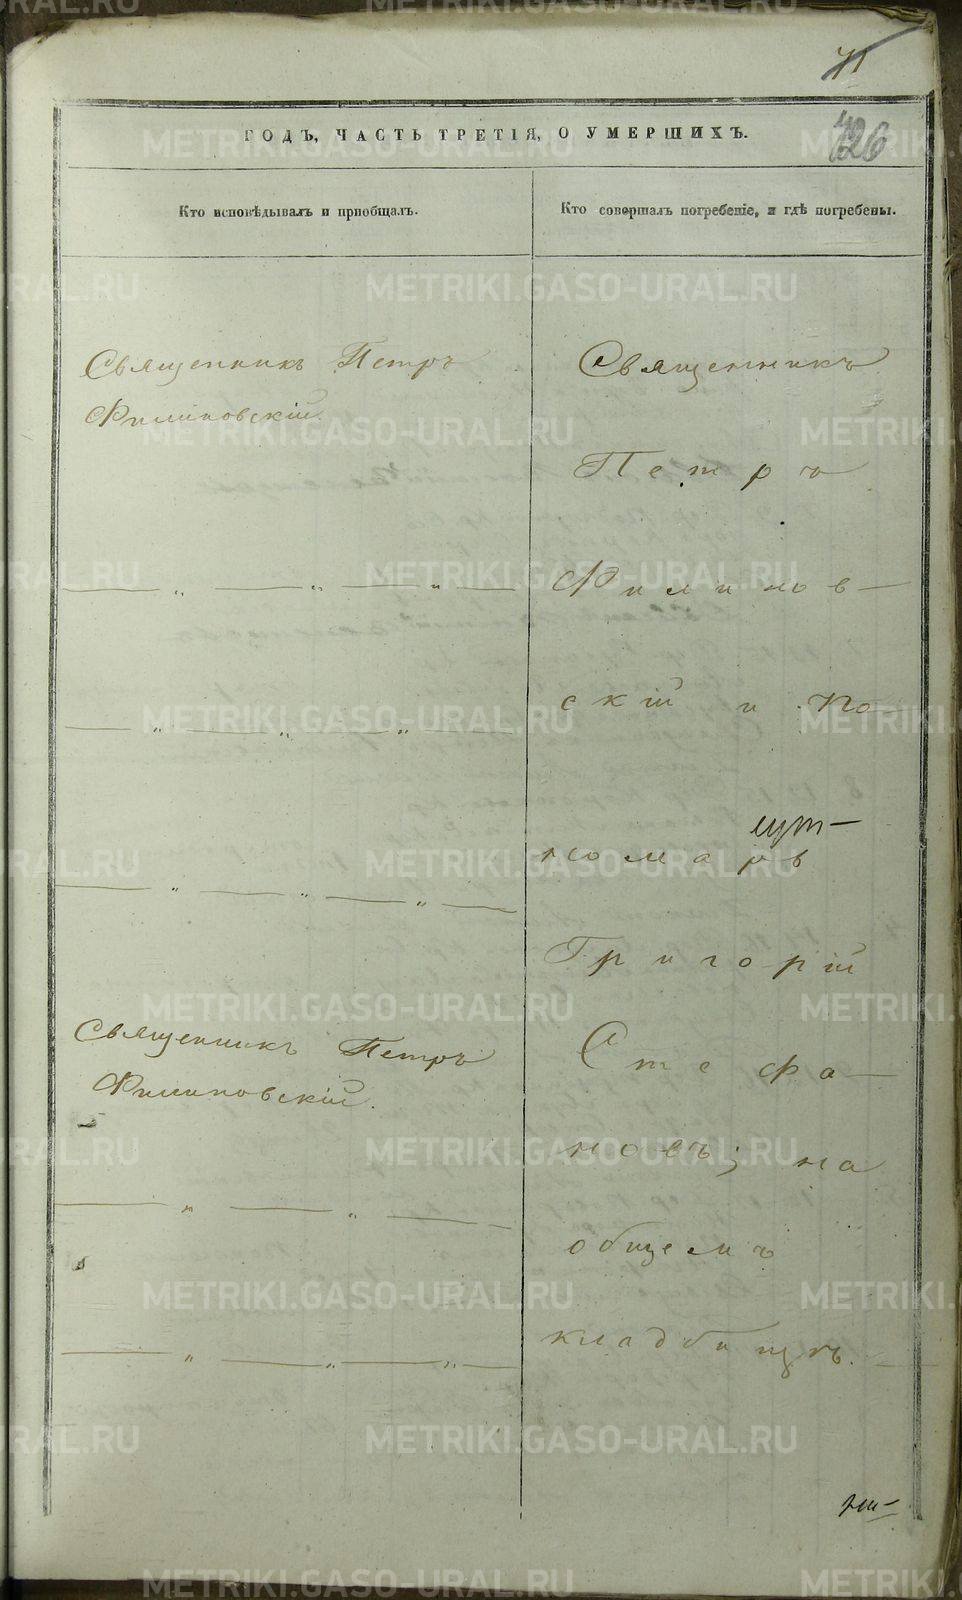 71
126
ГОДЪ, ЧАСТЬ ТРЕТІЯ, О УМЕРШИХЪ.
Кто исповѣдывалъ и пріобщалъ.
Кто совершалъ погребеніе, и гдѣ погребены.
Священникъ Петръ
Филиповскій
— „ — „ — „ —
— „ — „ — „ —
— „ — „ — „ —
Священникъ Петръ
Филиповскій.
— „ — „ — „ —
— „ — „ — „ —
Священникъ
Петръ
Филипов—
скій и По-
номарь
Григорій
Стефа—
новъ; на
общемъ
кладбищѣ.
METRIKI.GASO-URAL.RU